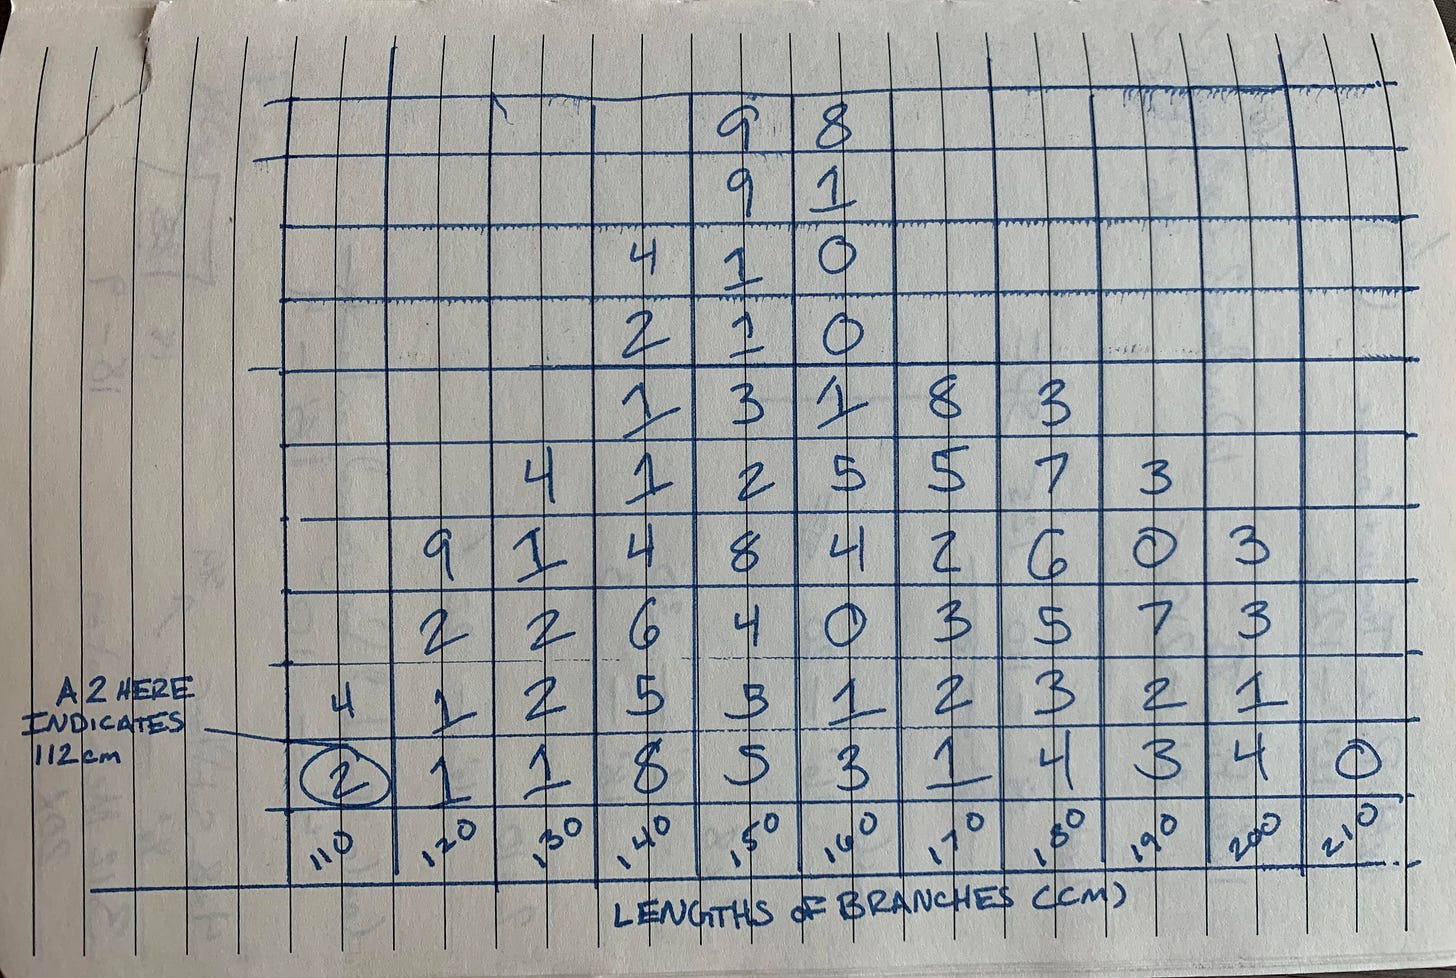 9 8
9 1
4 1 0
2 1 0
1 3 1 8 3
4 1 2 5 5 7 3
9 1 4 8 4 2 6 0 3
2 2 6 4 0 3 5 7 3
4 1 2 5 5 1 2 3 2 1
2 1 1 8 5 3 1 4 3 4 0
110 120 130 140 150 160 170 180 190 200 210
A 2 HERE
INDICATES
112 cm
LENGTHS OF BRANCHES (CM)